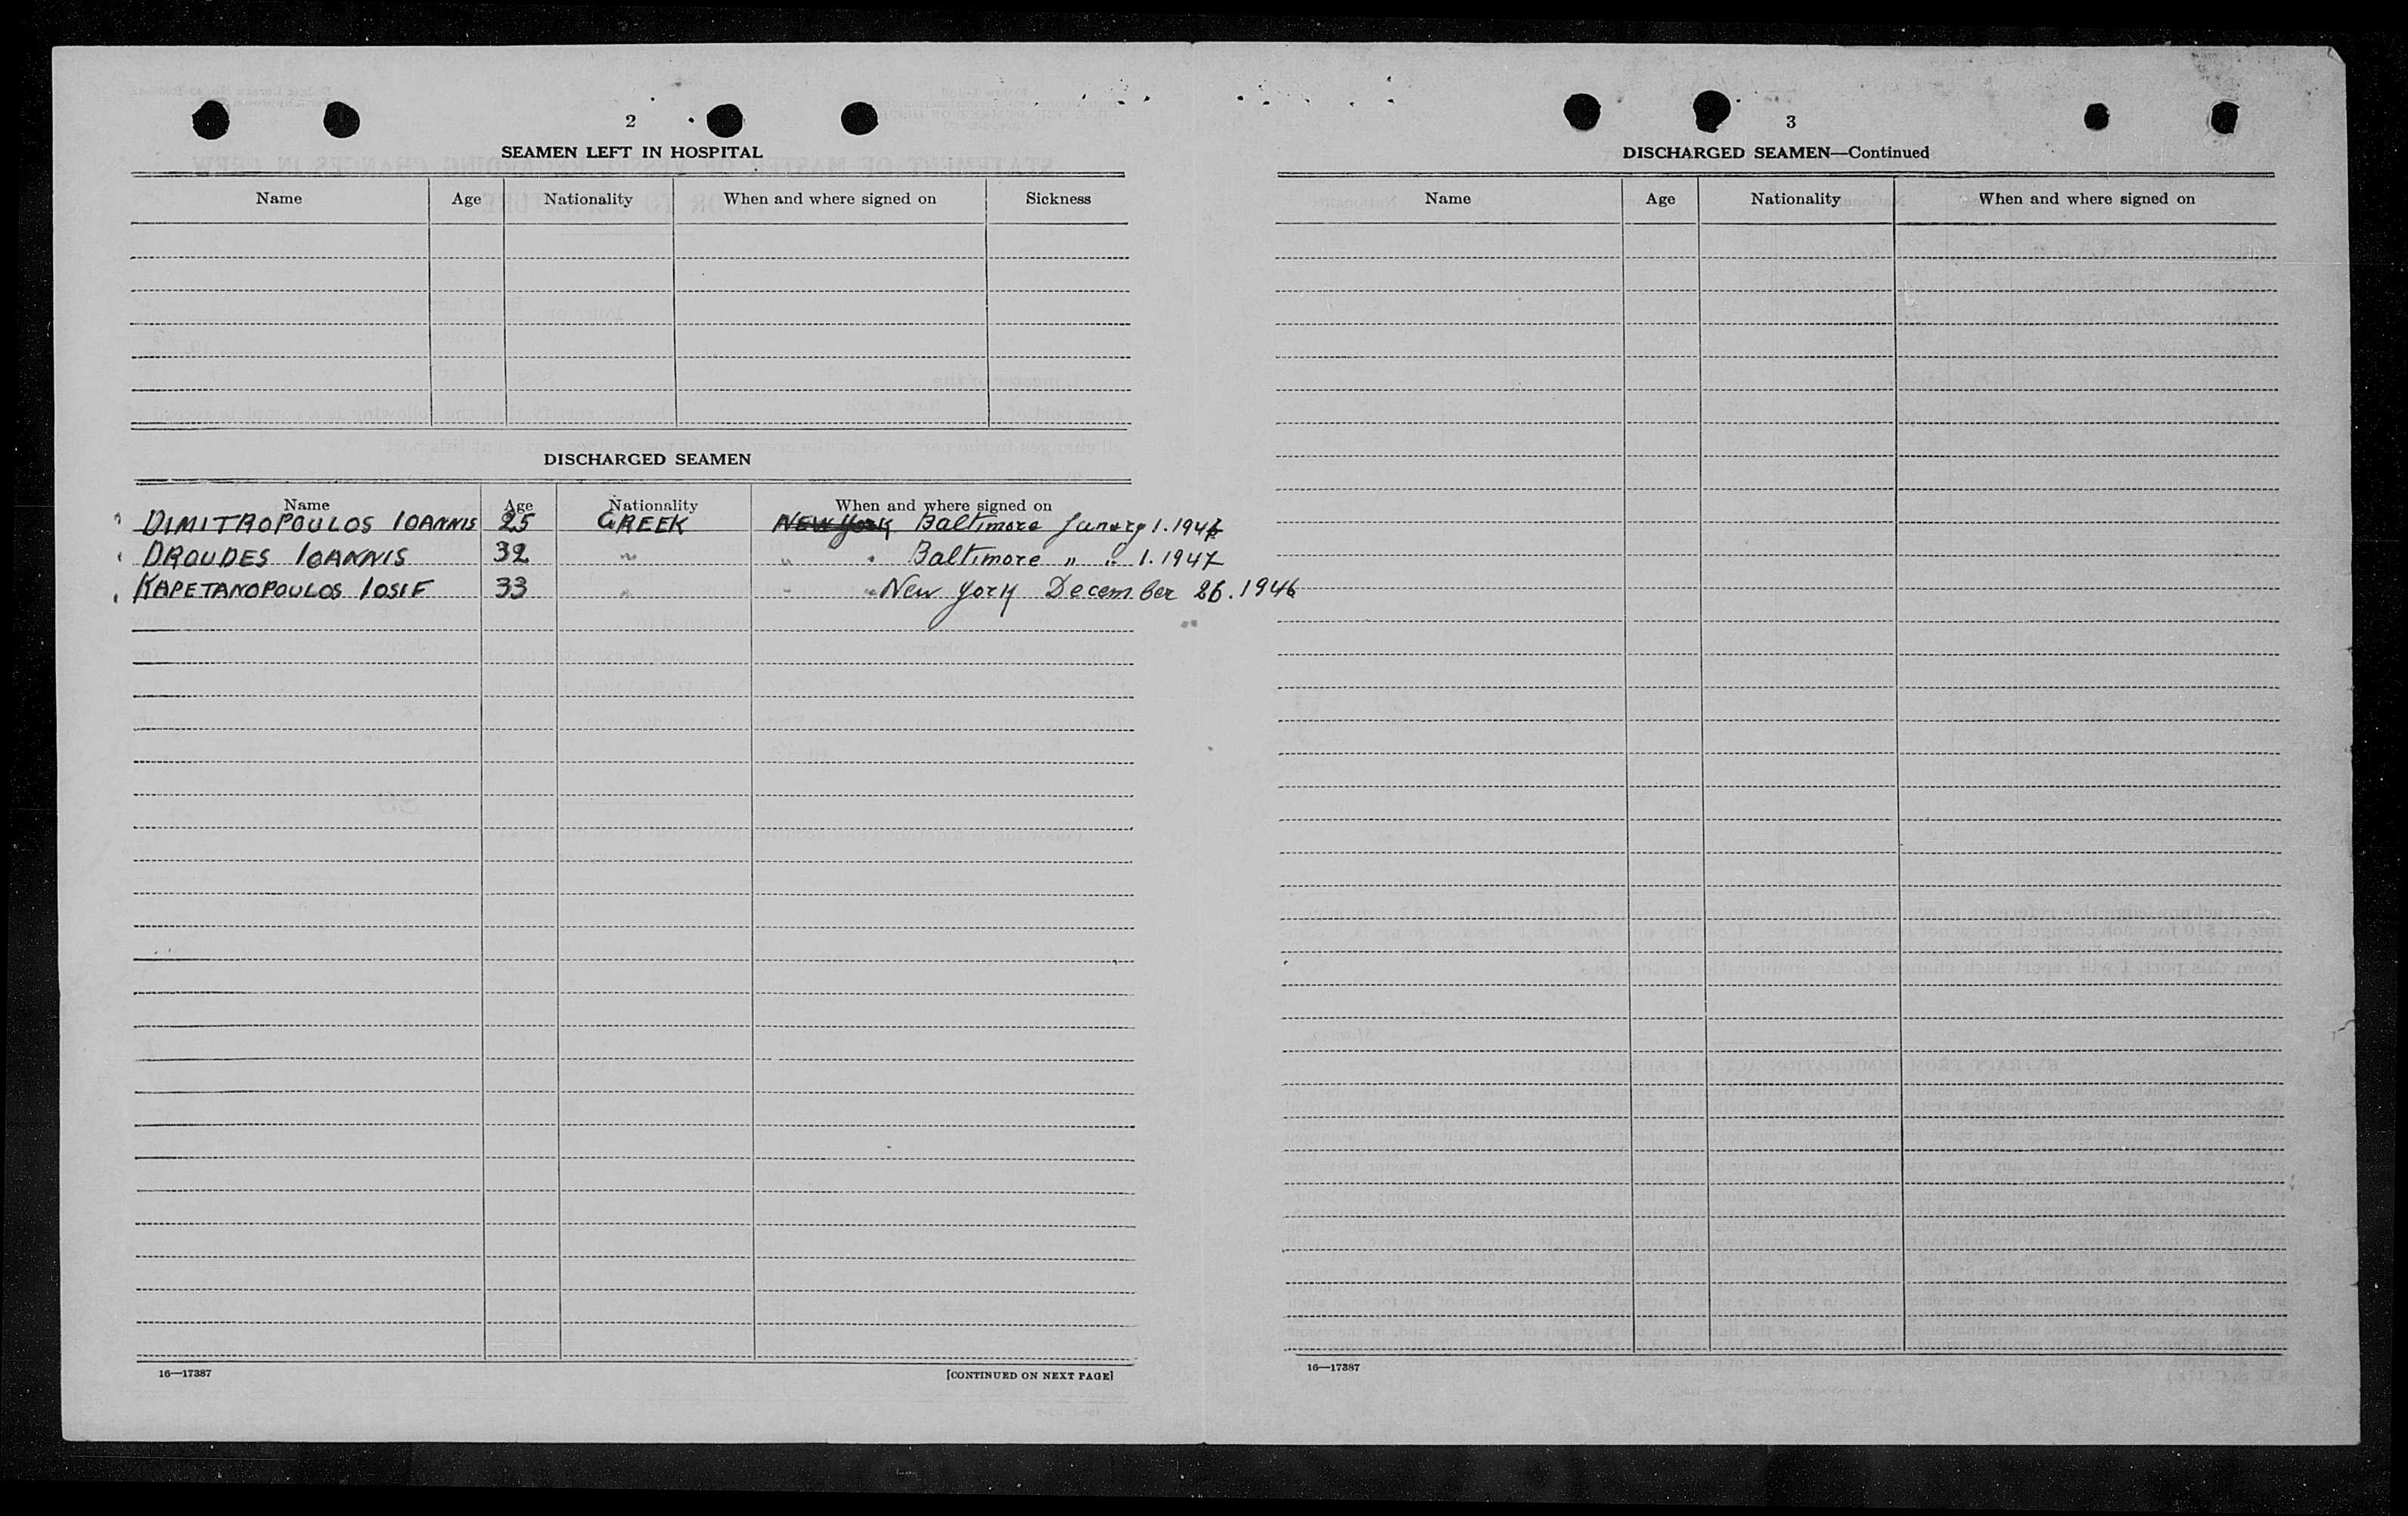 2
SEAMEN LEFT IN HOSPITAL
Name Age Nationality When and where signed on Sickness
DISCHARGED SEAMEN
Name Age Nationality When and where signed on
DIMITROPOULOS IOANNIS 25 GREEK NEW York Baltimore Janury 1. 1947
DROUDES IOANNIS 32 " " " Baltimore " " 1. 1947
KAPETANOPOULOS IOSIF 33 " " " New York December 26. 1946
16—17387
[CONTINUED ON NEXT PAGE]
3
DISCHARGED SEAMEN—Continued
Name Age Nationality When and where signed on
16—17387